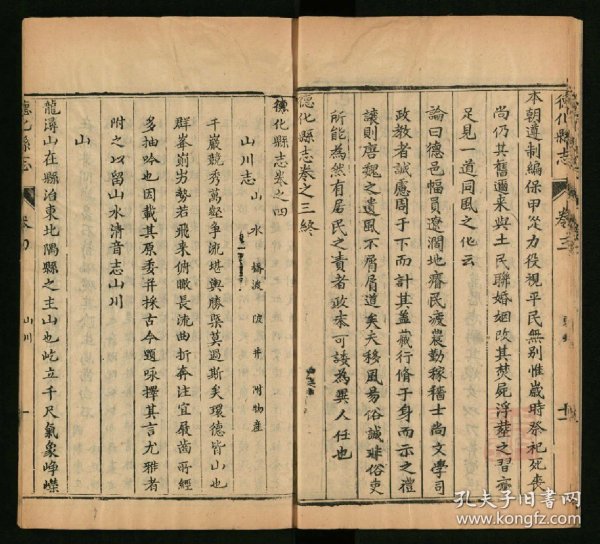 德化縣志 卷三
本朝遵制編保甲從力役視平民無別惟歲時祭祀死喪
尚仍其舊邇來與土民聯婚姻改其焚屍浮葬之習亦
足見一道同風之化云
論曰德邑幅員遼濶地瘠民淳農勤稼穡士尚文學司
政教者誠應周于下而計其蓋藏行脩于身而示之禮
讓則唐魏之遺風不屑屑道矣夫移風易俗誠非俗吏
所能為然有居民之責者政本可諉為異人任也
德化縣志卷之三終
德化縣志卷之四
山川志 山 水 橋 渡 陂 井 附物產
千巖競秀萬壑爭流堪輿勝槩莫過斯矣環德皆山也
群峯崱屴勢若飛来俯瞰長流曲折奔注宜嚴齒所經
多抽吟也因載其原委并採古今題咏擇其言尤雅者
附之以留山水清音志山川
山
龍潯山在縣治東北隅縣之主山也屹立千尺氣象崢嶸
德化縣志 卷四 山川 一
孔夫子旧书网
www.kongfz.com